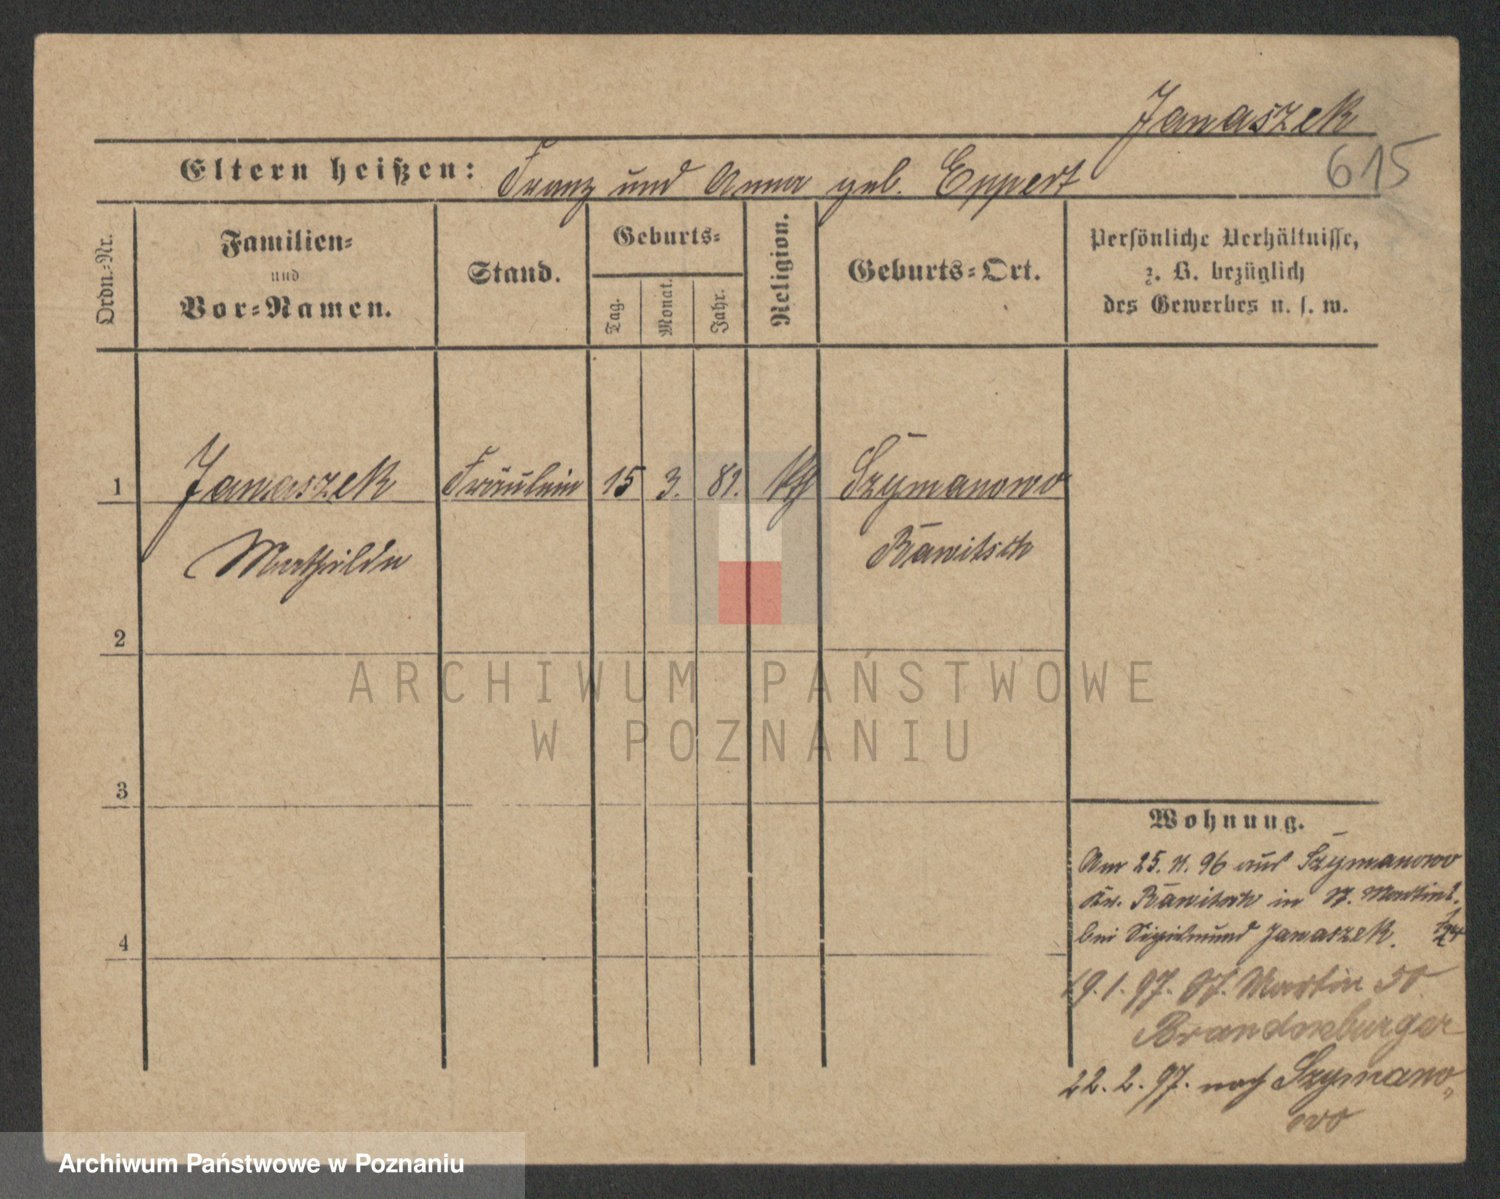 Janaszek
615
Eltern heißen: Franz und Anna geb. Eppert
Ordn.-Nr.
Familien-
und
Vor-Namen.
Stand.
Geburts-
Tag.
Monat.
Jahr.
Religion.
Geburts-Ort.
Persönliche Verhältnisse,
z. B. bezüglich
des Gewerbes u. s. w.
1 Janaszek Fräulein 15 3. 81. kth Szymanowo
Mathilde Rawitsch
2
ARCHIWUM PAŃSTWOWE
W POZNANIU
3
4
Wohnung.
Am 25. 11. 96 aus Szymanowo
Kr. Rawitsch in St. Martin
bei Sigismund Janaszek.
19. 1. 97. St. Martin 50
Brandenburger
22. 2. 97. nach Szymano-
wo
Archiwum Państwowe w Poznaniu